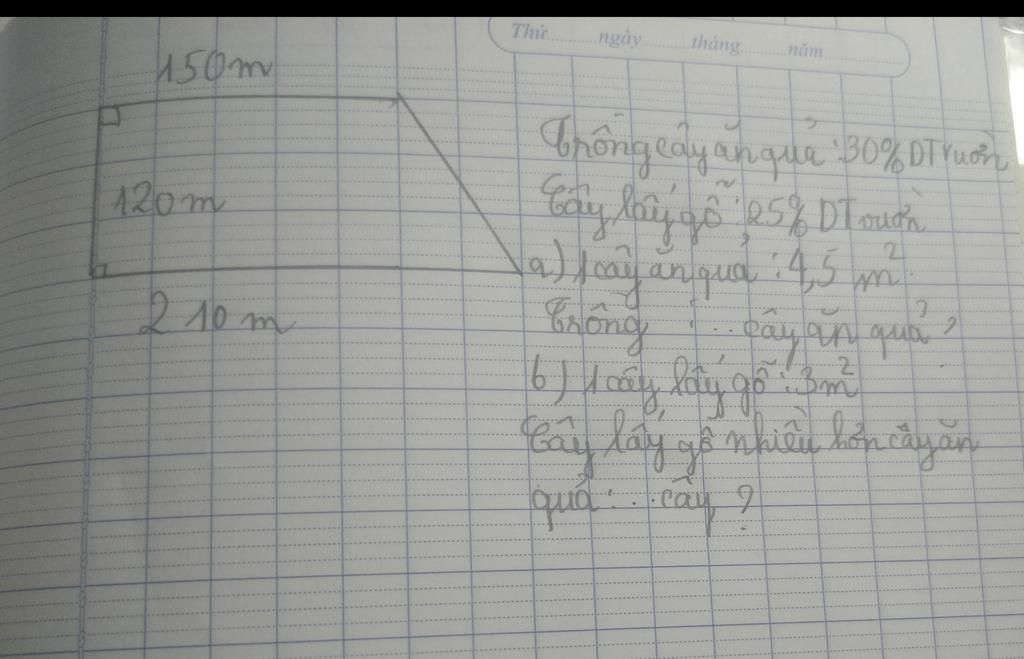 Thứ ngày tháng năm
150m
120m
210m
Trồng cây ăn quả : 30% DT vườn
Cây lấy gỗ : 25% DT vườn
a) 1 cây ăn quả : 4,5 m²
Trồng : .. cây ăn quả ?
b) 1 cây lấy gỗ : 3m²
Cây lấy gỗ nhiều hơn cây ăn
quả : .. cây ?